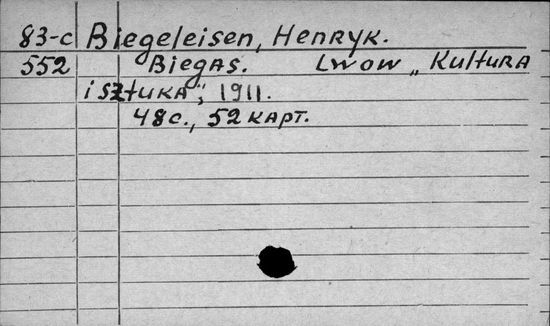 83-c Biegeleisen, Henryk.
552 Biegas. Lwow „Kultura
i sztuka", 1911.
48 с., 52 карт.